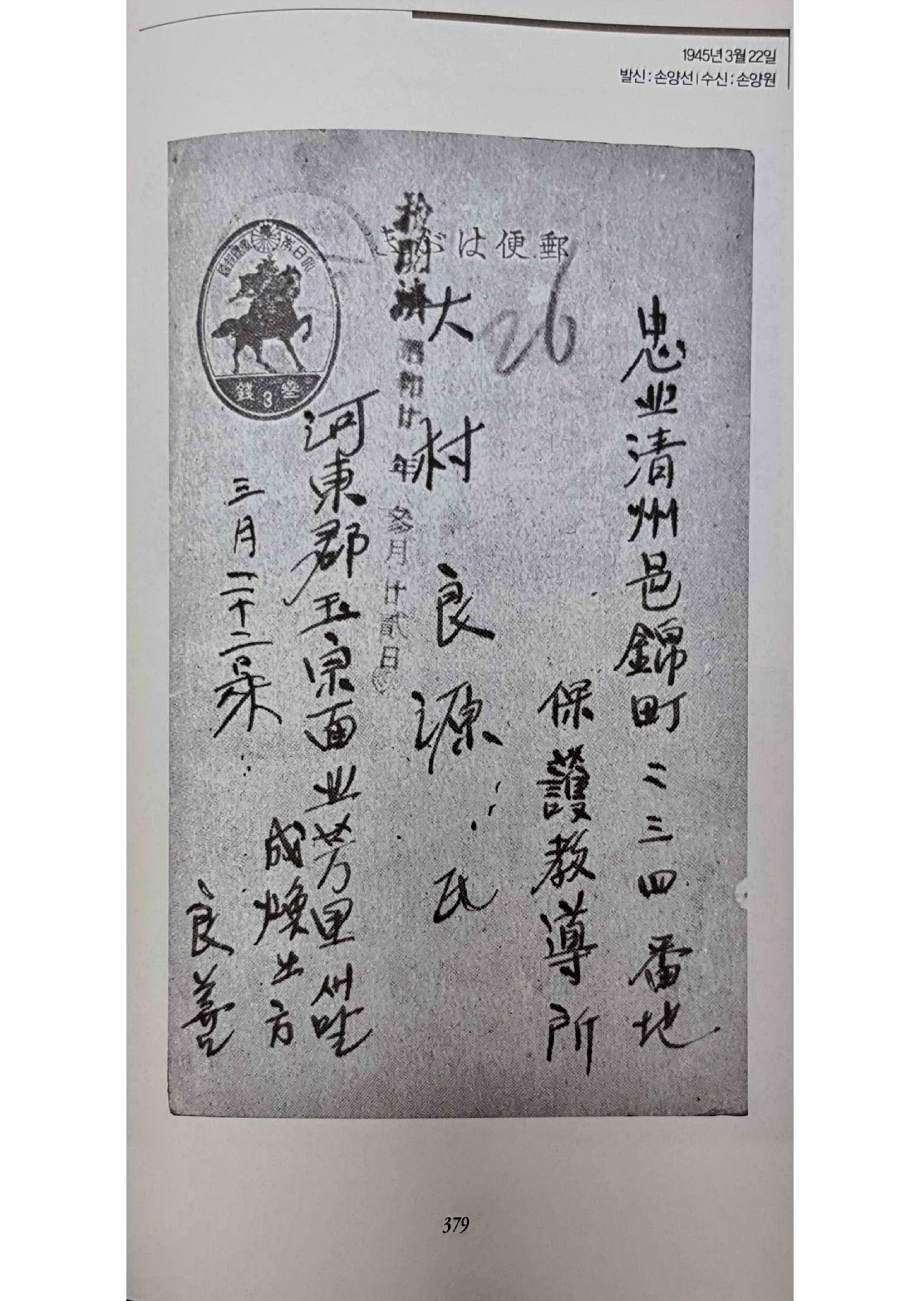 1945년 3월 22일
발신 : 손양선 | 수신 : 손양원
郵便はがき
大日本帝國郵便
參 3 錢
26
忠北清州邑錦町二三四番地
保護教導所
大村良源氏
檢閱濟 昭和廿年參月廿貳日
河東郡玉宗面北芳里새말
成煥 方
三月二十二日
良善
379